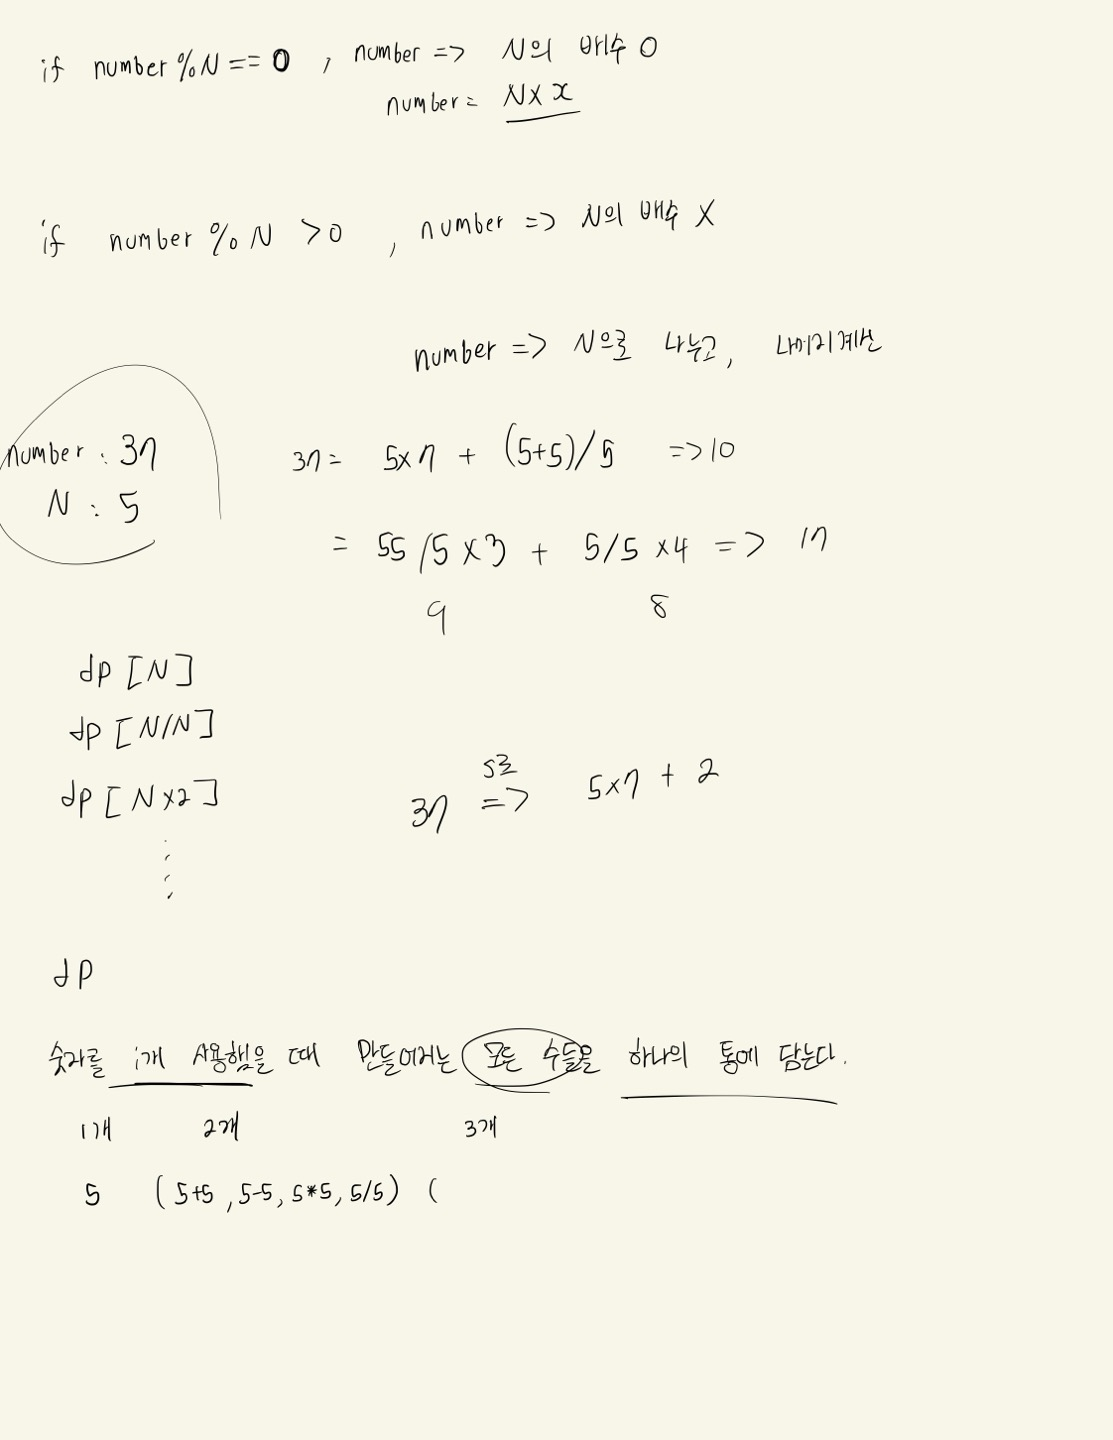 if number % N == 0 , number => N의 배수 O
number = N X x
if number % N > 0 , number => N의 배수 X
number => N으로 나누고, 나머지 계산
number : 37
N : 5
37 = 5x7 + (5+5)/5 => 10
= 55/5 x 3 + 5/5 x4 => 17
9 8
dp [N]
dp [N/N]
dp [N x2]
37 => 5x7 + 2
5로
dp
숫자를 i개 사용했을 때 만들어지는 모든 수들을 하나의 통에 담는다.
1개 2개 3개
5 (5+5 , 5-5, 5*5, 5/5) (